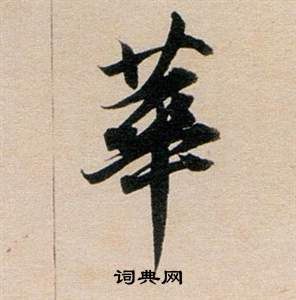 華
词典网